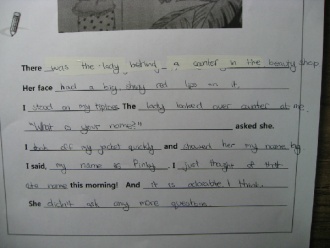 There was the lady behind a counter in the beauty shop
Her face had a big, shiny red lips on it.
I stood on my tiptoes. The lady looked over counter at me.
"What is your name?" asked she.
I took off my jacket quickly and showed her my name tag
I said, my name is Pinky. I just thought of that
name this morning! And it is adorable I think.
She didn't ask any more questions.